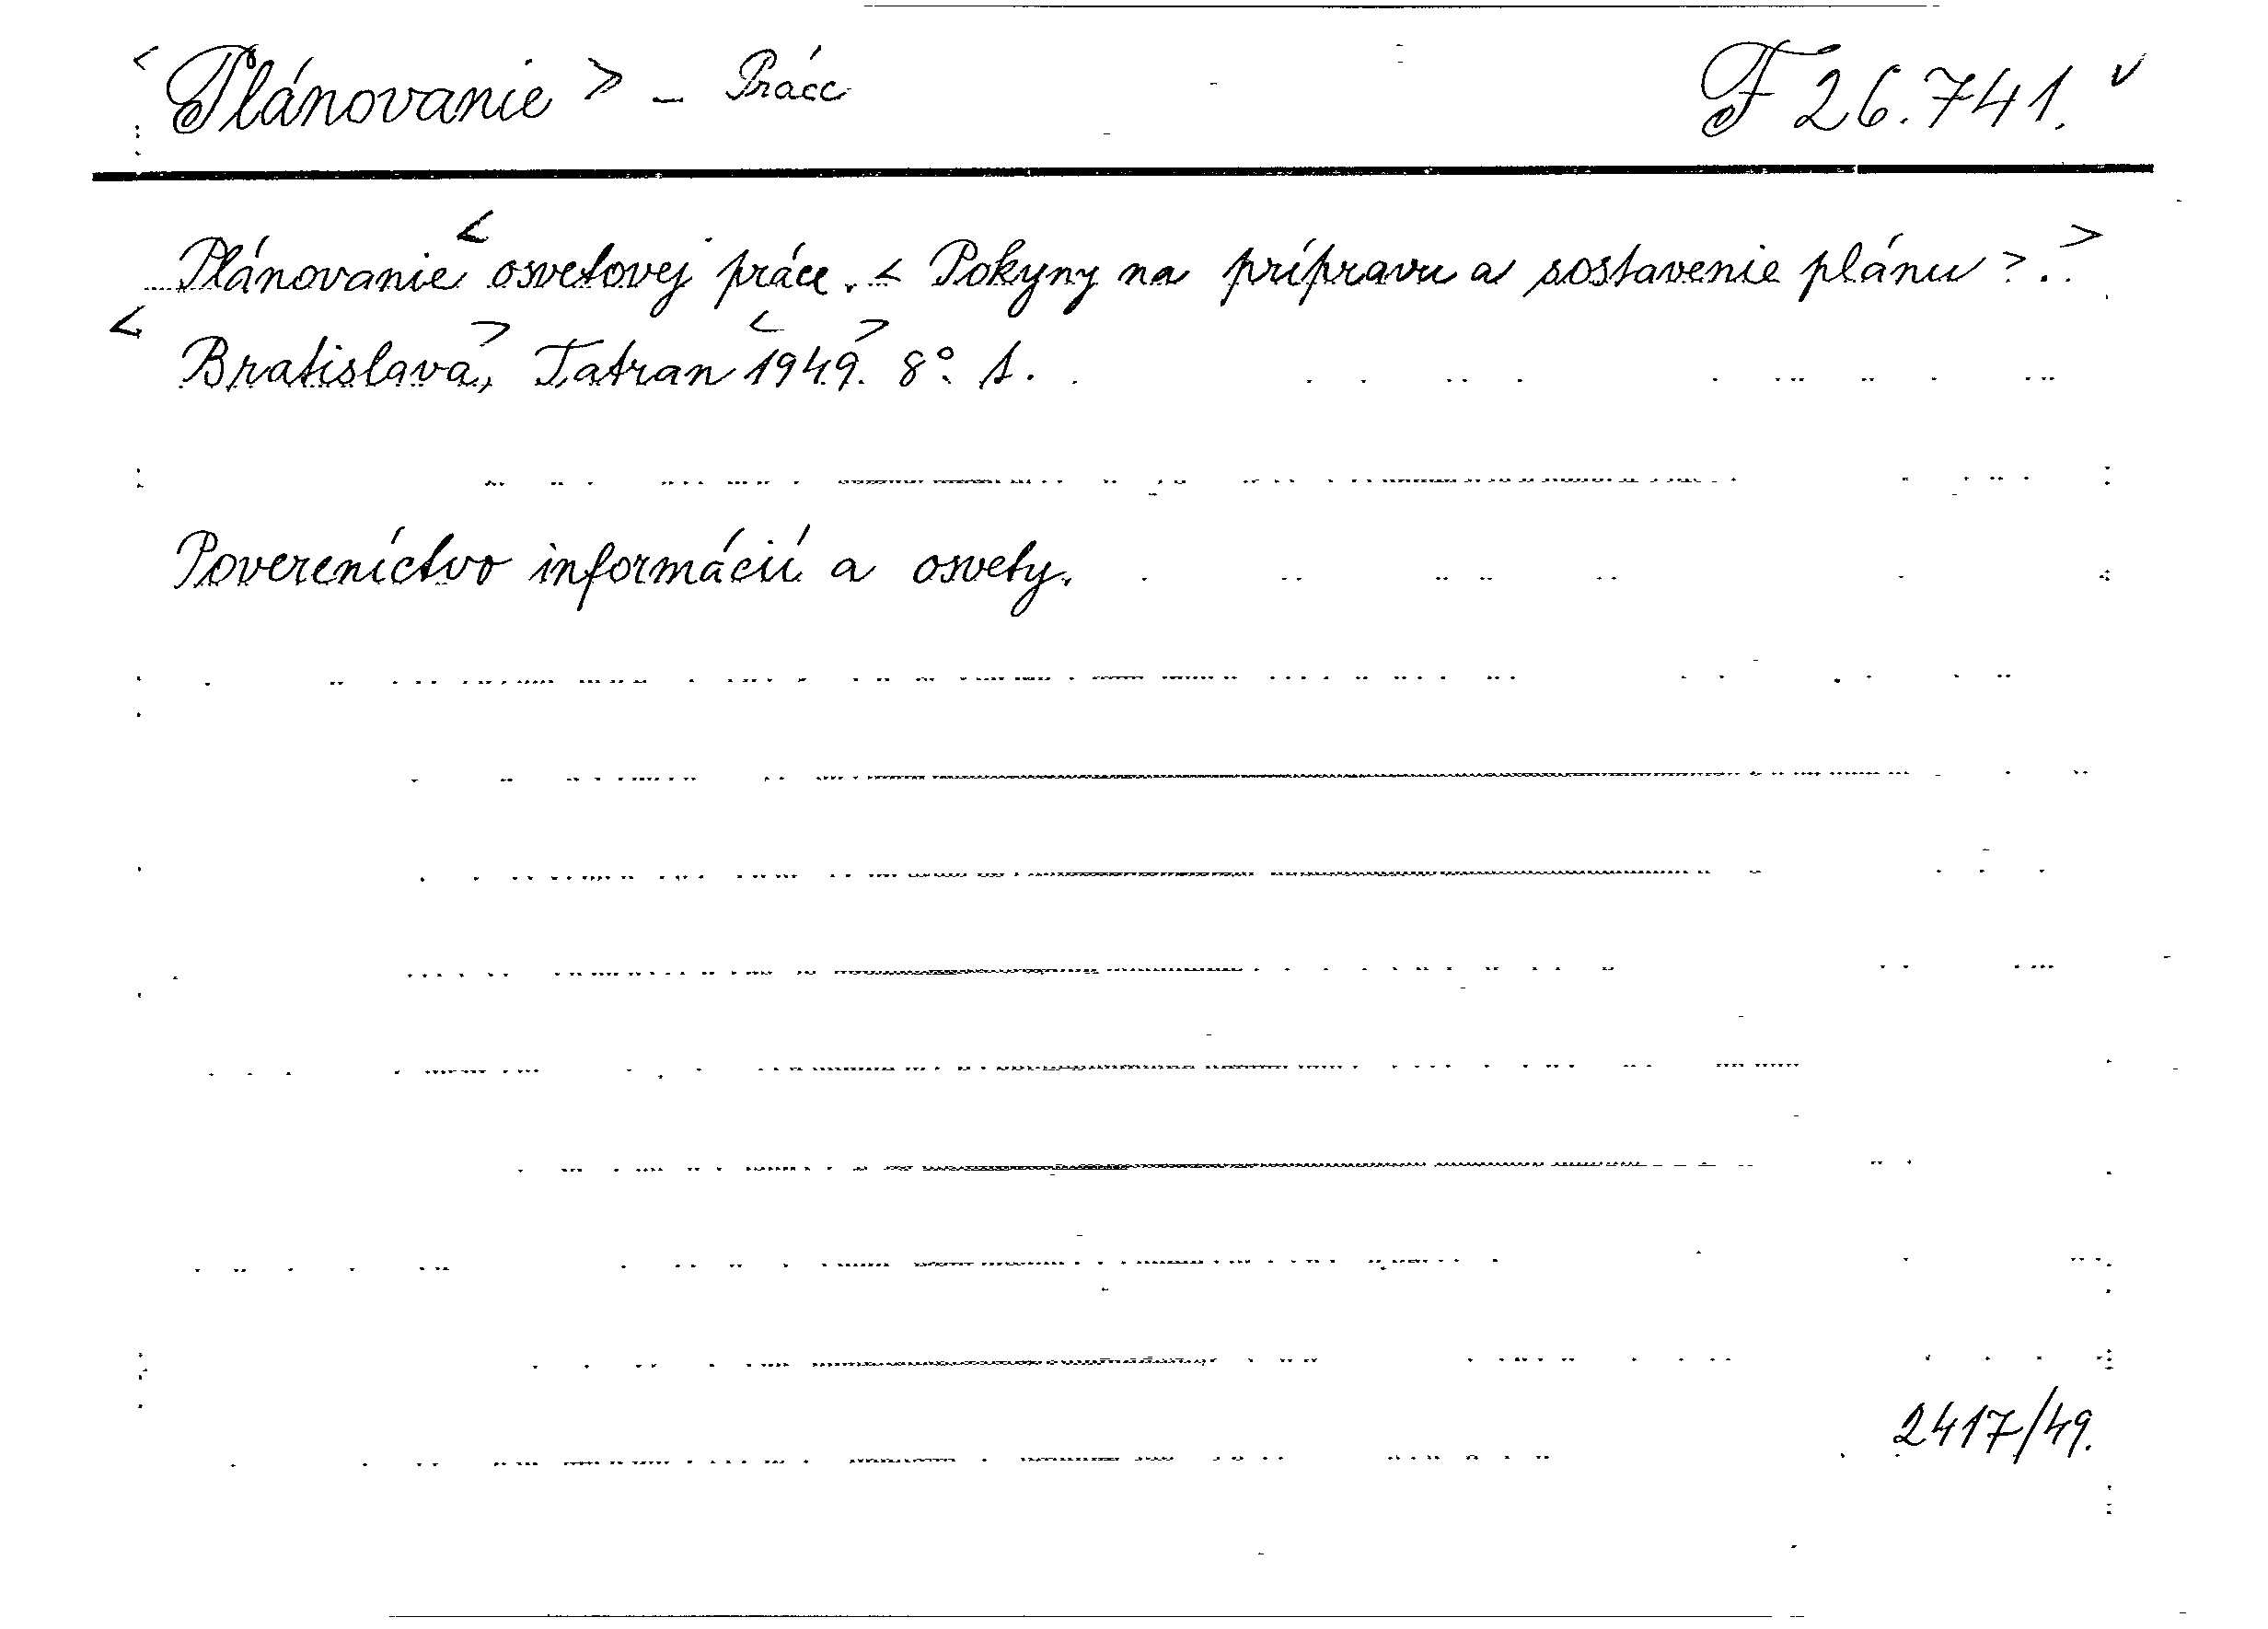 < Plánovanie > - Práce F 26.741. v
Plánovanie < osvetovej práce. < Pokyny na prípravu a sostavenie plánu >. >
< Bratislava >, Tatran < 1949 >. 8°. 1.
Povereníctvo informácií a osvety.
2417/49.